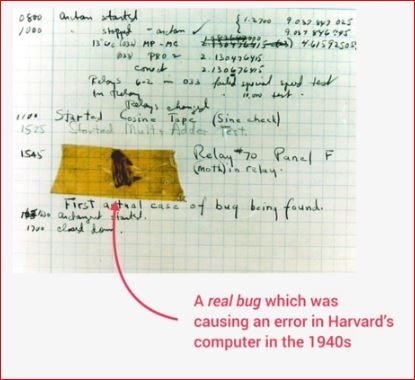 0800 Antan started
1000 " stopped - antan ✓ { 1.2700 9.037 847 025
9.037 846 995
13"uc (032) MP - MC 4.615925059
(033) PRO 2 2.130476415
Correct 2.130676415
Relays 6-2 in 033 failed special speed test
In Relay " 10.000 test.
Relays changed
1100 Started Cosine Tape (Sine check)
1525 Started Mult + Adder Test.
1545 Relay #70 Panel F
(moth) in relay.
First actual case of bug being found.
antangent started.
1700 closed down.
A real bug which was
causing an error in Harvard's
computer in the 1940s